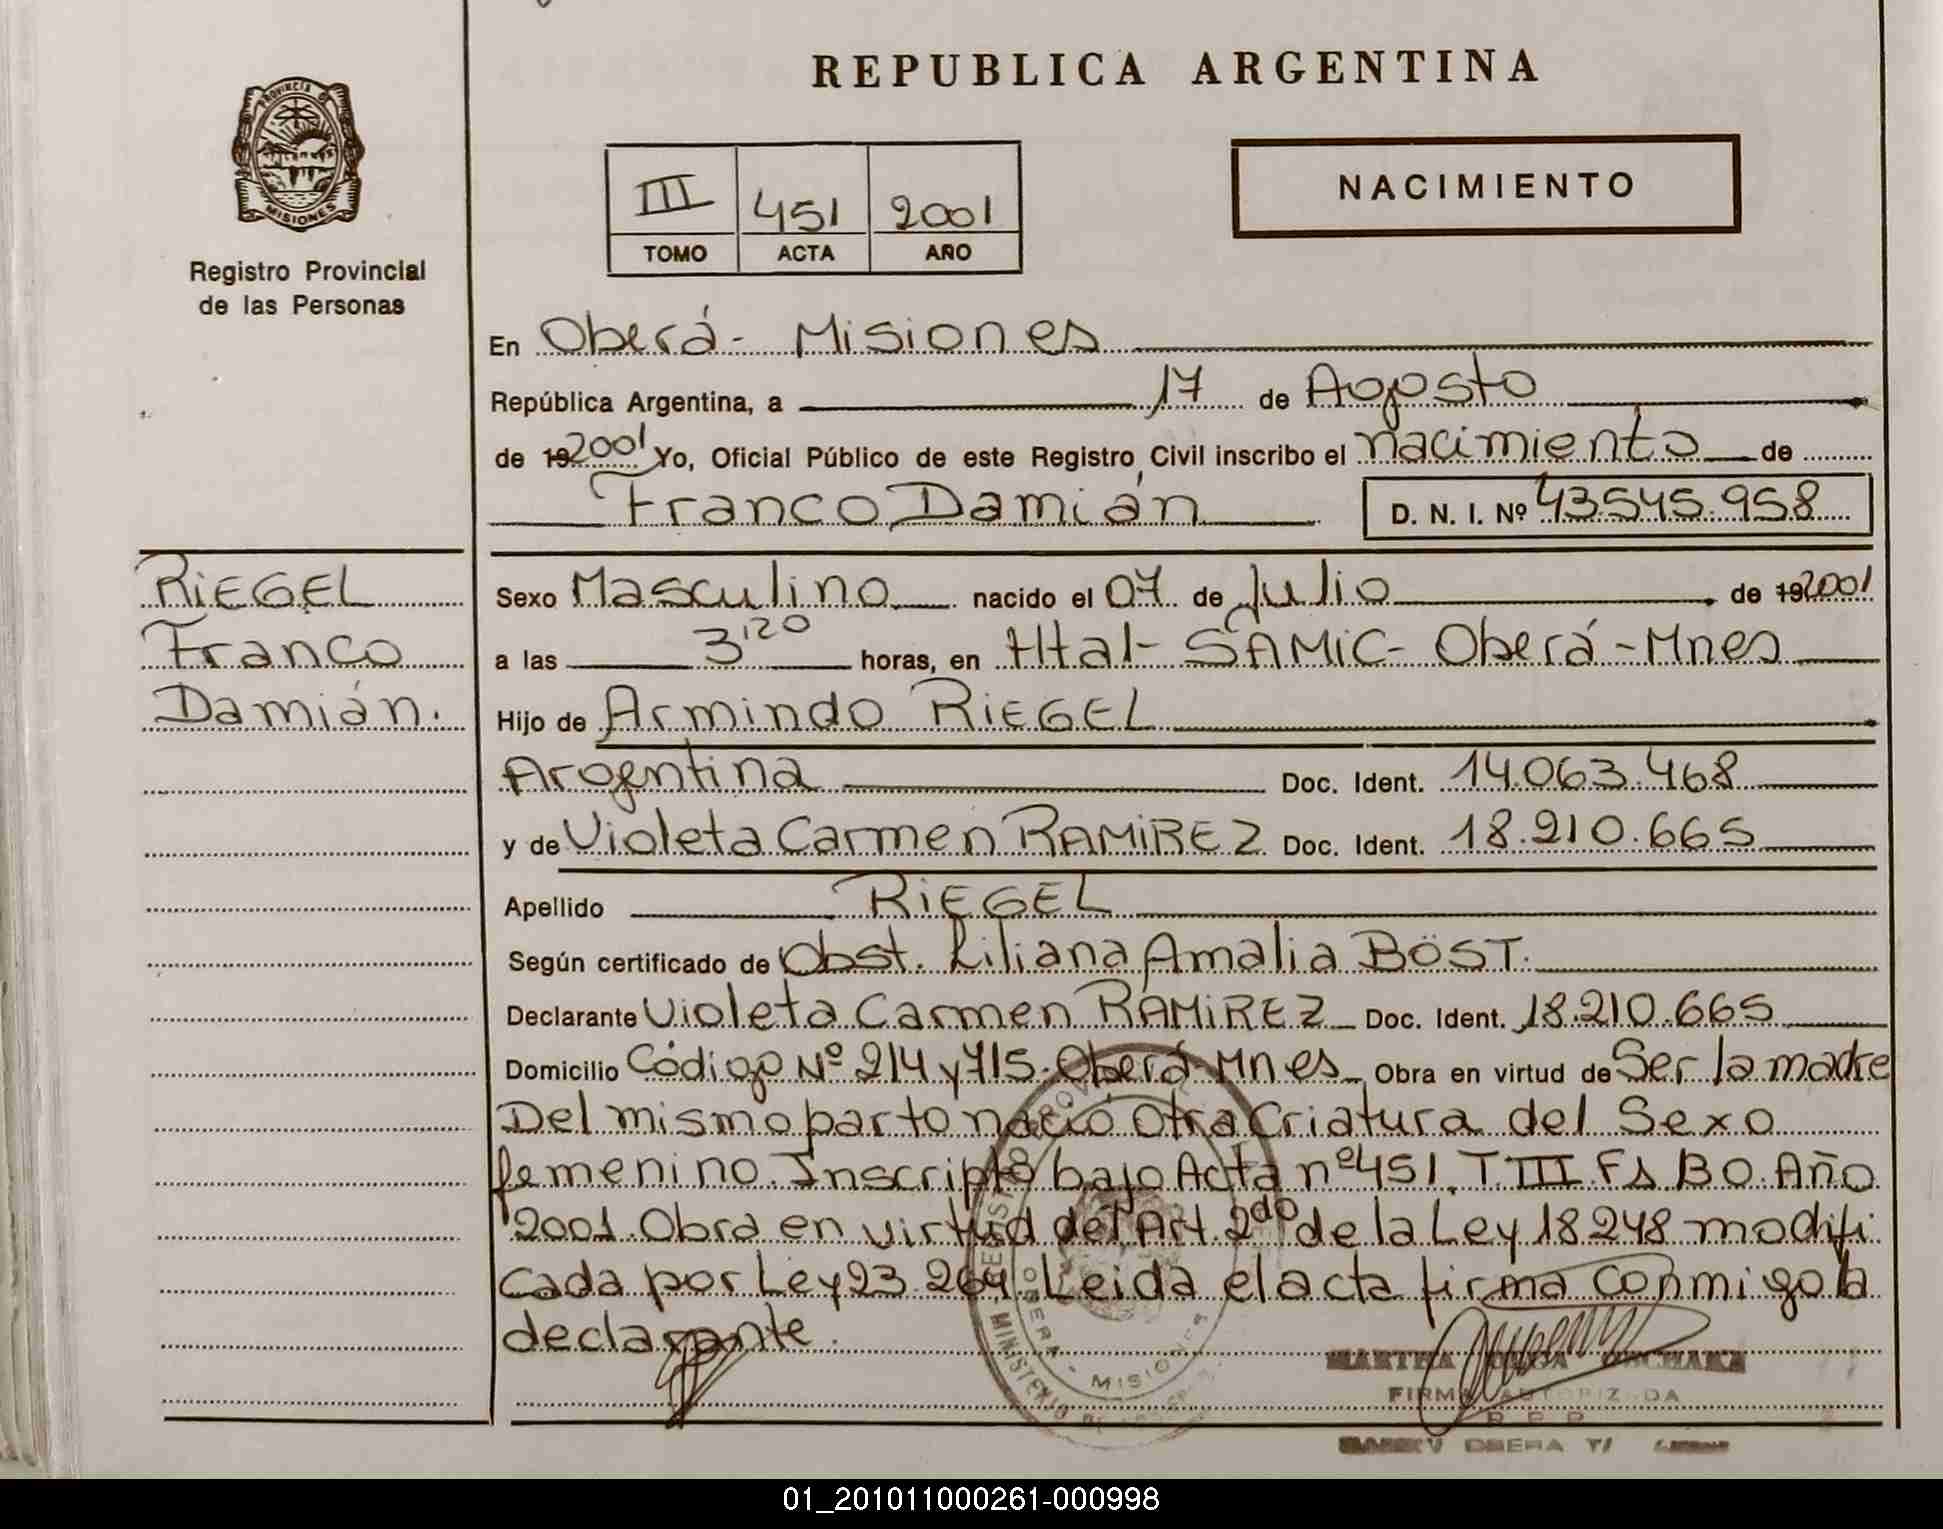 REPUBLICA ARGENTINA
PROVINCIA DE
MISIONES
Registro Provincial
de las Personas
III 451 2001
TOMO ACTA AÑO
NACIMIENTO
En Oberá - Misiones
República Argentina, a 17 de Agosto
de 19 2001 Yo, Oficial Público de este Registro Civil inscribo el nacimiento de
Franco Damián D. N. I. Nº 43.545.958
RiEGEL
Franco
Damián.
Sexo Masculino nacido el 07 de Julio de 19 2001
a las 3'20 horas, en Htal - SAMiC - Oberá - Mnes
Hijo de Armindo RiEGEL
Argentina Doc. Ident. 14.063.468
y de Violeta Carmen RAMiREZ Doc. Ident. 18.210.665
Apellido RiEGEL
Según certificado de Obst. Liliana Amalia BÖST.
Declarante Violeta Carmen RAMiREZ Doc. Ident. 18.210.665
Domicilio Código Nº 214 y 715. Oberá - Mnes Obra en virtud de Ser la madre
Del mismo parto nació otra Criatura del Sexo
femenino. Inscripto bajo Acta nº 451. T. III. Fs BO. Año
2001. Obra en virtud del Art. 2do de la Ley 18248 modifi
cada por Ley 23.264. Leida el acta firma conmigo la
declarante.
OBERA - MISIONES
MINISTERIO DE
MARTHA OLGA
FIRMA AUTORIZADA
R P P
OBERA
01_201011000261-000998